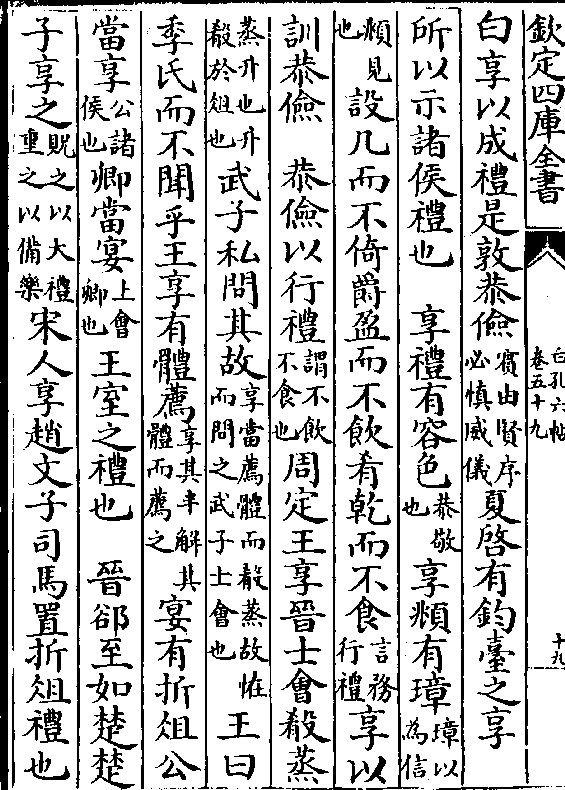 欽定四庫全書
白孔六帖
卷五十九
十九
白享以成禮是敦恭儉賓由賢序必慎威儀夏啓有鈞臺之享
所以示諸侯禮也　享禮有容色恭敬也享頫有璋璋以為信
也頫見設几而不倚爵盈而不飲肴乾而不食言務行禮享以
訓恭儉　恭儉以行禮謂不飲不食也周定王享晉士會殽蒸
蒸升也升殽於俎也武子私問其故享當薦體而殽蒸故恠而問之武子士會也王曰
季氏而不聞乎王享有體薦享其半解其體而薦之宴有折俎公
當享公諸侯也卿當宴上會卿也王室之禮也　晉郤至如楚楚
子享之貺之以大禮重之以備樂宋人享趙文子司馬置折俎禮也